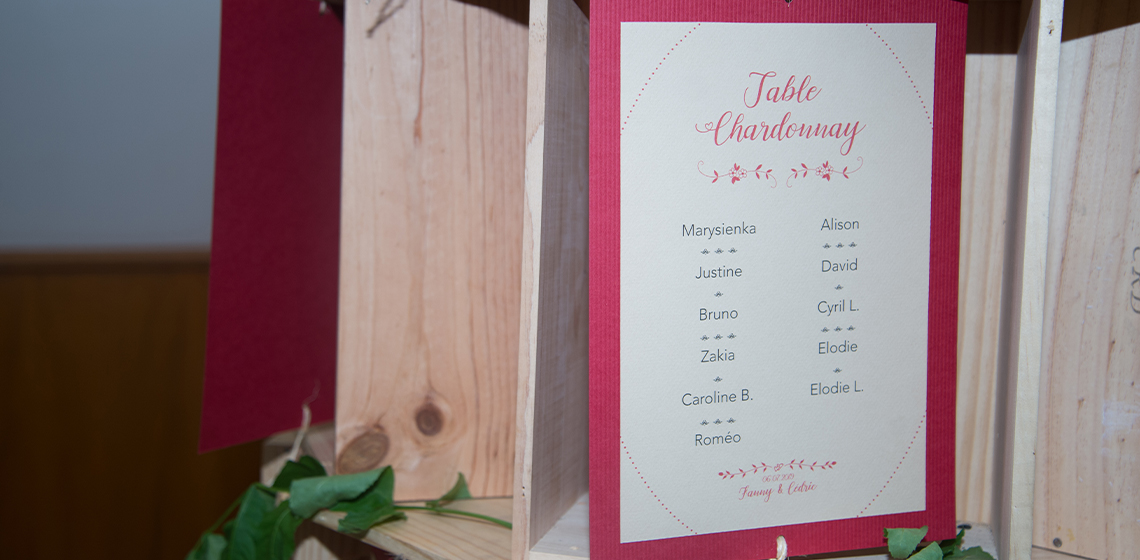 Table
Chardonnay
Marysienka
Justine
Bruno
Zakia
Caroline B.
Roméo
Alison
David
Cyril L.
Elodie
Elodie L.
Fanny & Cédric